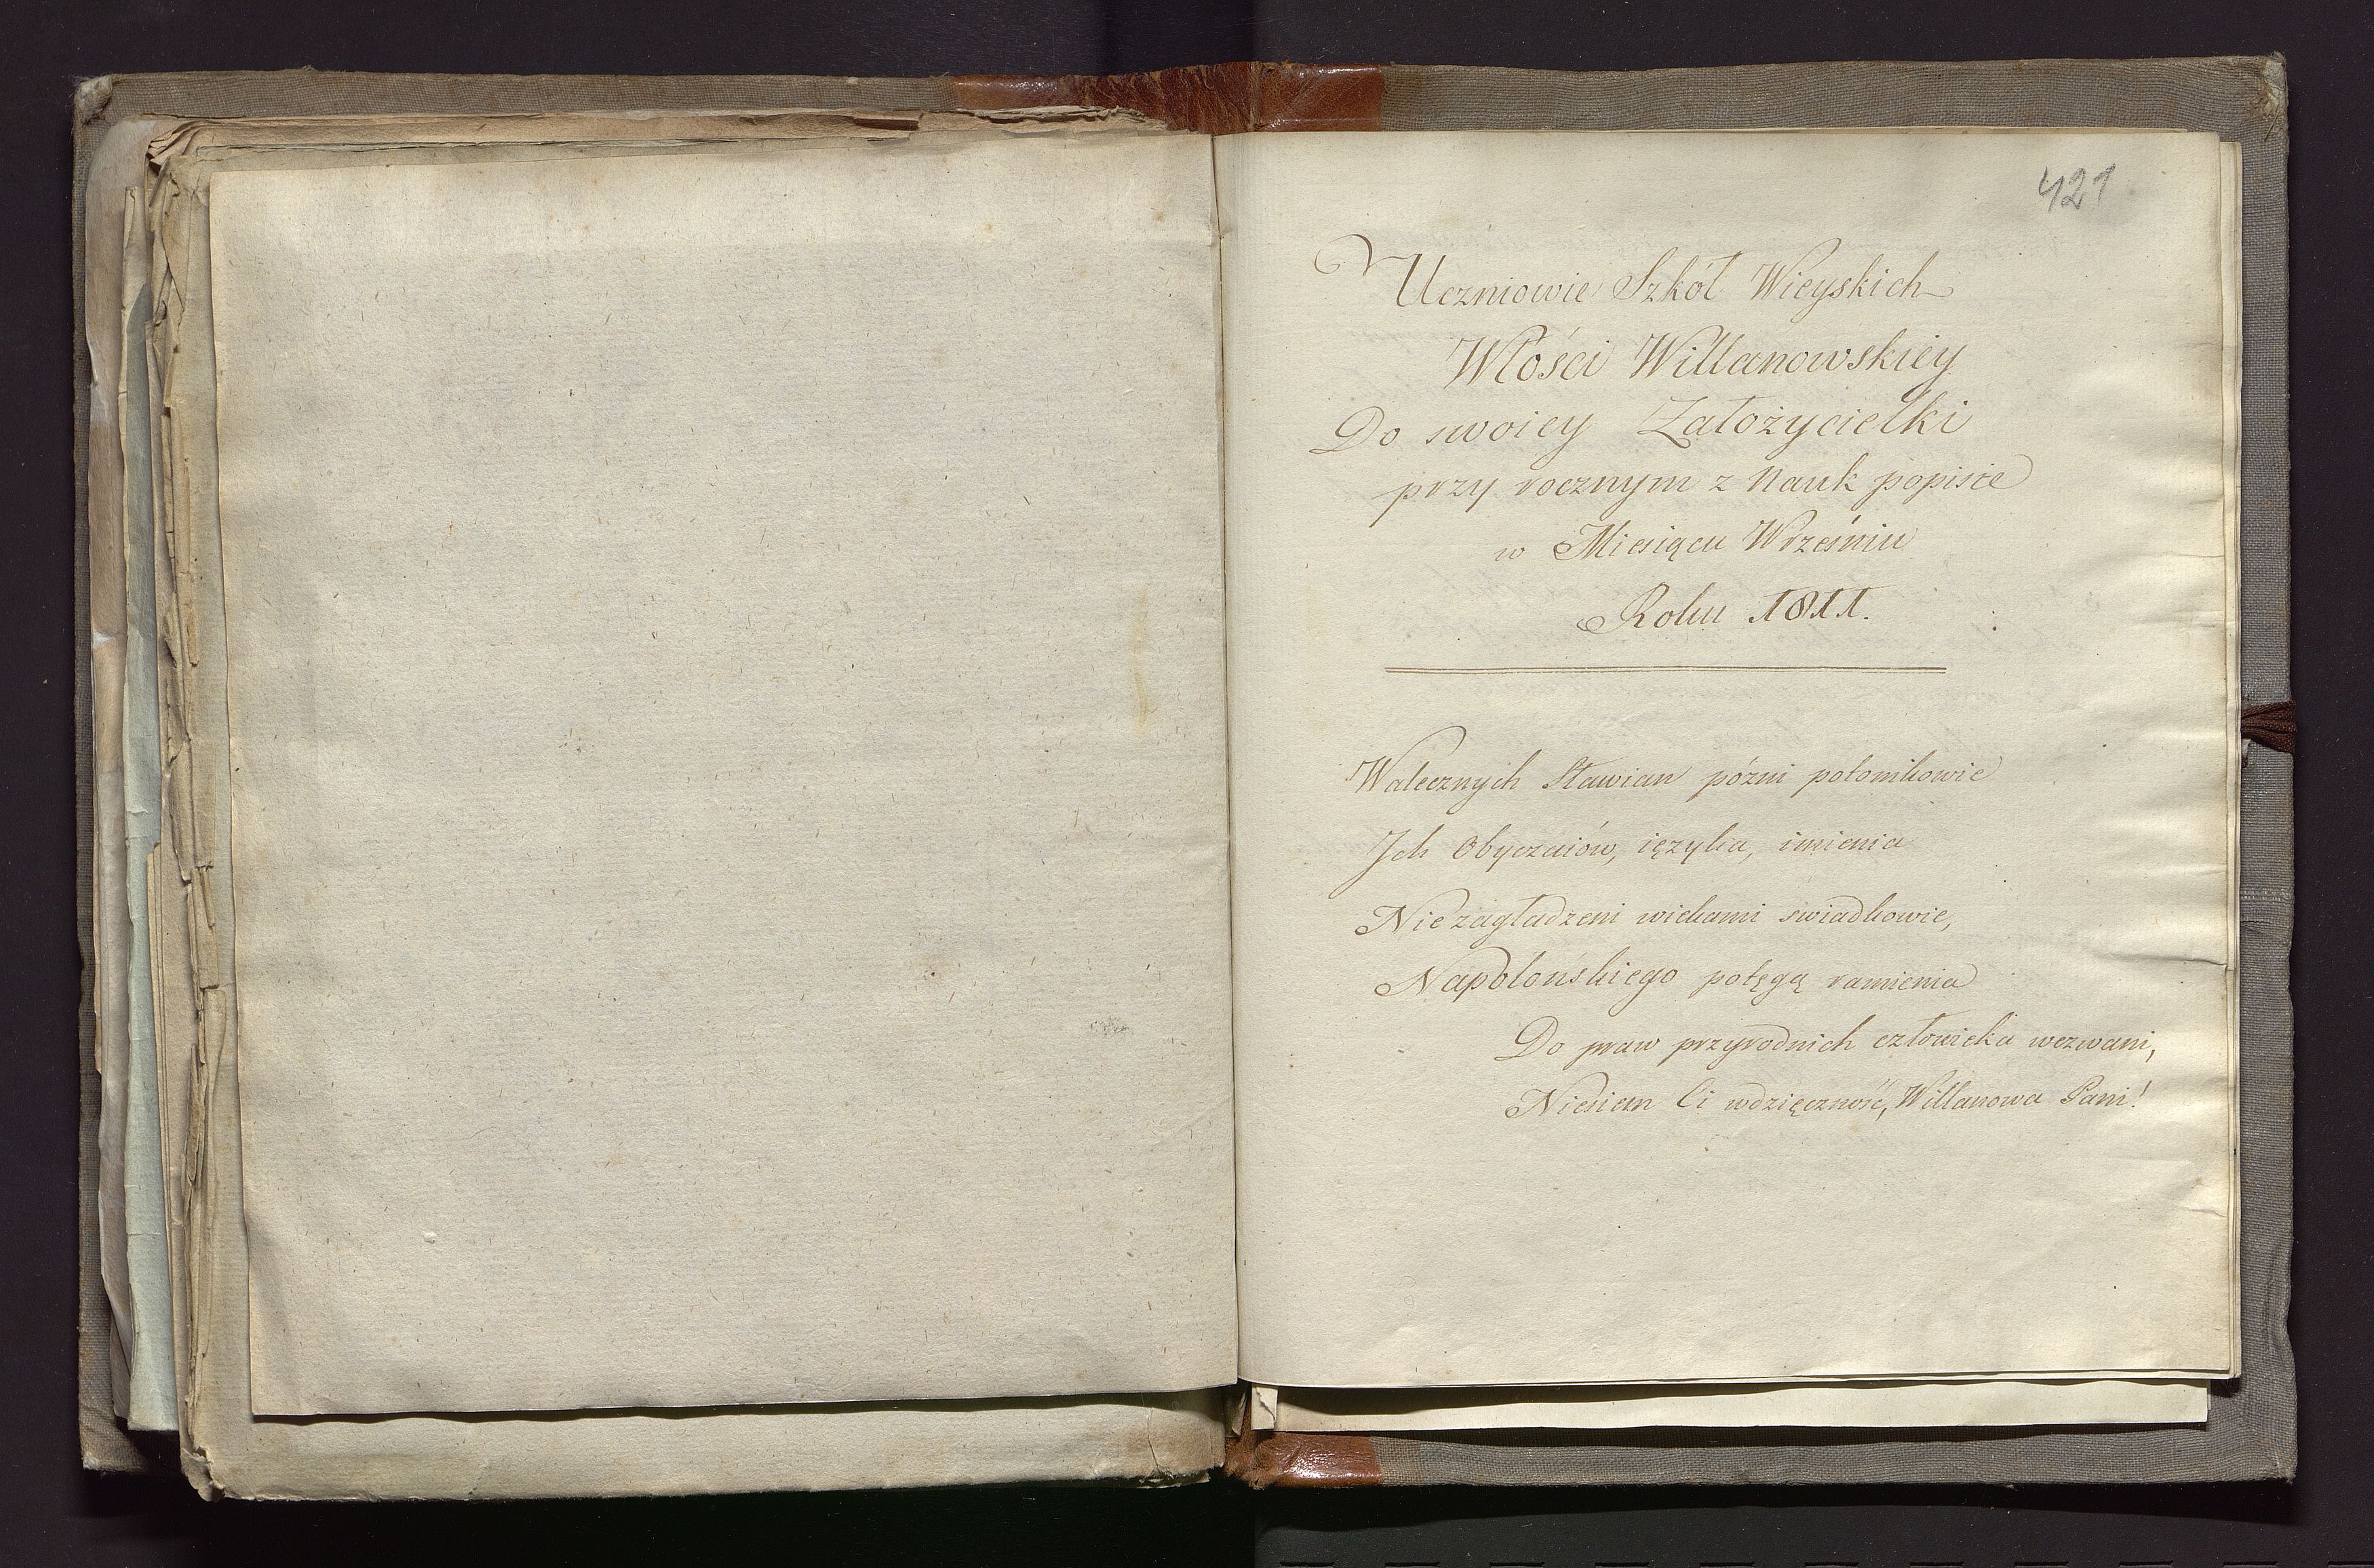 421
Uczniowie Szkół Wieyskich
Włości Willanowskiey
Do swoiey Założycielki
przy rocznym z Nauk popisie
w Miesiącu Wrześniu
Roku 1811.
Walecznych Sławian pózni potomkowie
Jch Obyczaiów, ięzyka, imienia
Niezagładzeni wiekami swiadkowie,
Napolońskiego potęgą ramienia
Do praw przyrodnich człowieka wezwani,
Niesiem Ci wdzięczność, Willanowa Pani!